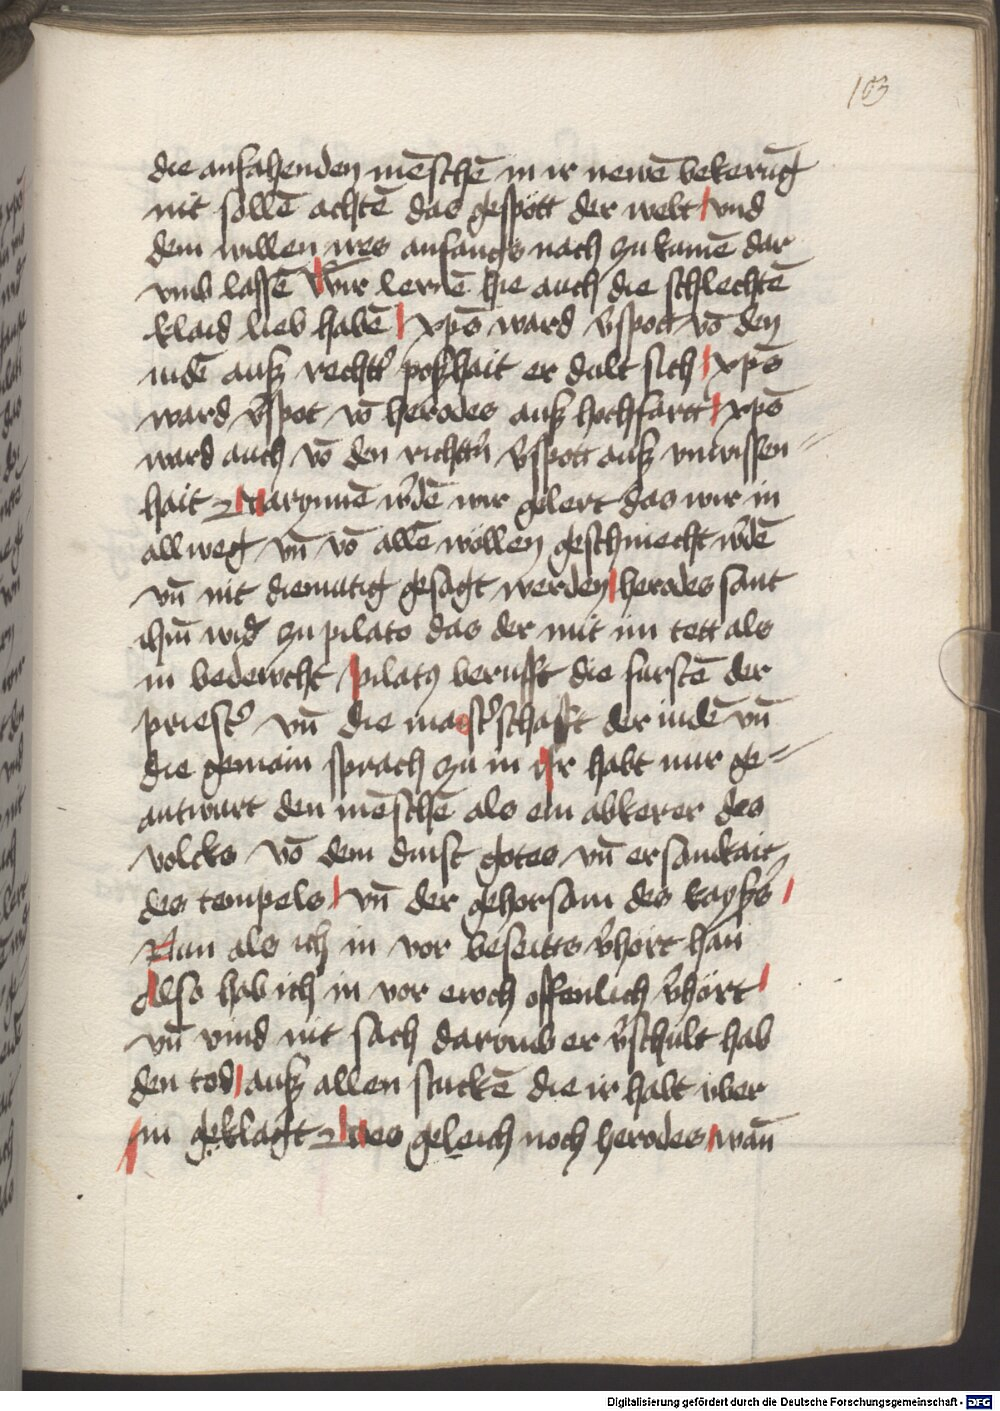 103
die anfahenden mēschē in ir newē bekerūg
nit sollē achtē das gespött der welt / vnd
dem willen wes anfangs nach zu kamē dar
vmb lassē Wir lernē hie auch die schlechtē
klaid lieb habē / xp̄s ward v̄spott vō den
iudē auß rechtt' poßhait er dult sich / xp̄s
ward v̄spot vō herodes auß hochfartt / xp̄s
ward auch vō den richtt'n v̄spott auß vnwissen=
hait Darynnē w'dē wir gelert das wir in
allweg vn̄ vō allē wöllen geschmecht w'dē
vn̄ nit diemutig gesagt werden / herodes sant
ih̄m wid' zu pilato das der mit im tett als
in bedewcht / pilatꝰ berufft die furstē der
priest' vn̄ die maist'schafft der iudē vn̄
die gemain sprach zu in ir habt mir ge=
antwurt den mēschē als ein abkerer des
volcks vō dem dinst gotes vn̄ ersamkait
des tempels / vn̄ der gehorsam des kayß's /
Nun als ich in vor beseitts v'hört han
Also hab ich in vor ewch offenlich v'hört /
vn̄ vind nit sach darumb er v'schult hab
den tod / auß allen stuckē die ir habt vber
in geklagt Des geleich noch herodes / wan̄
Digitalisierung gefördert durch die Deutsche Forschungsgemeinschaft - DFG